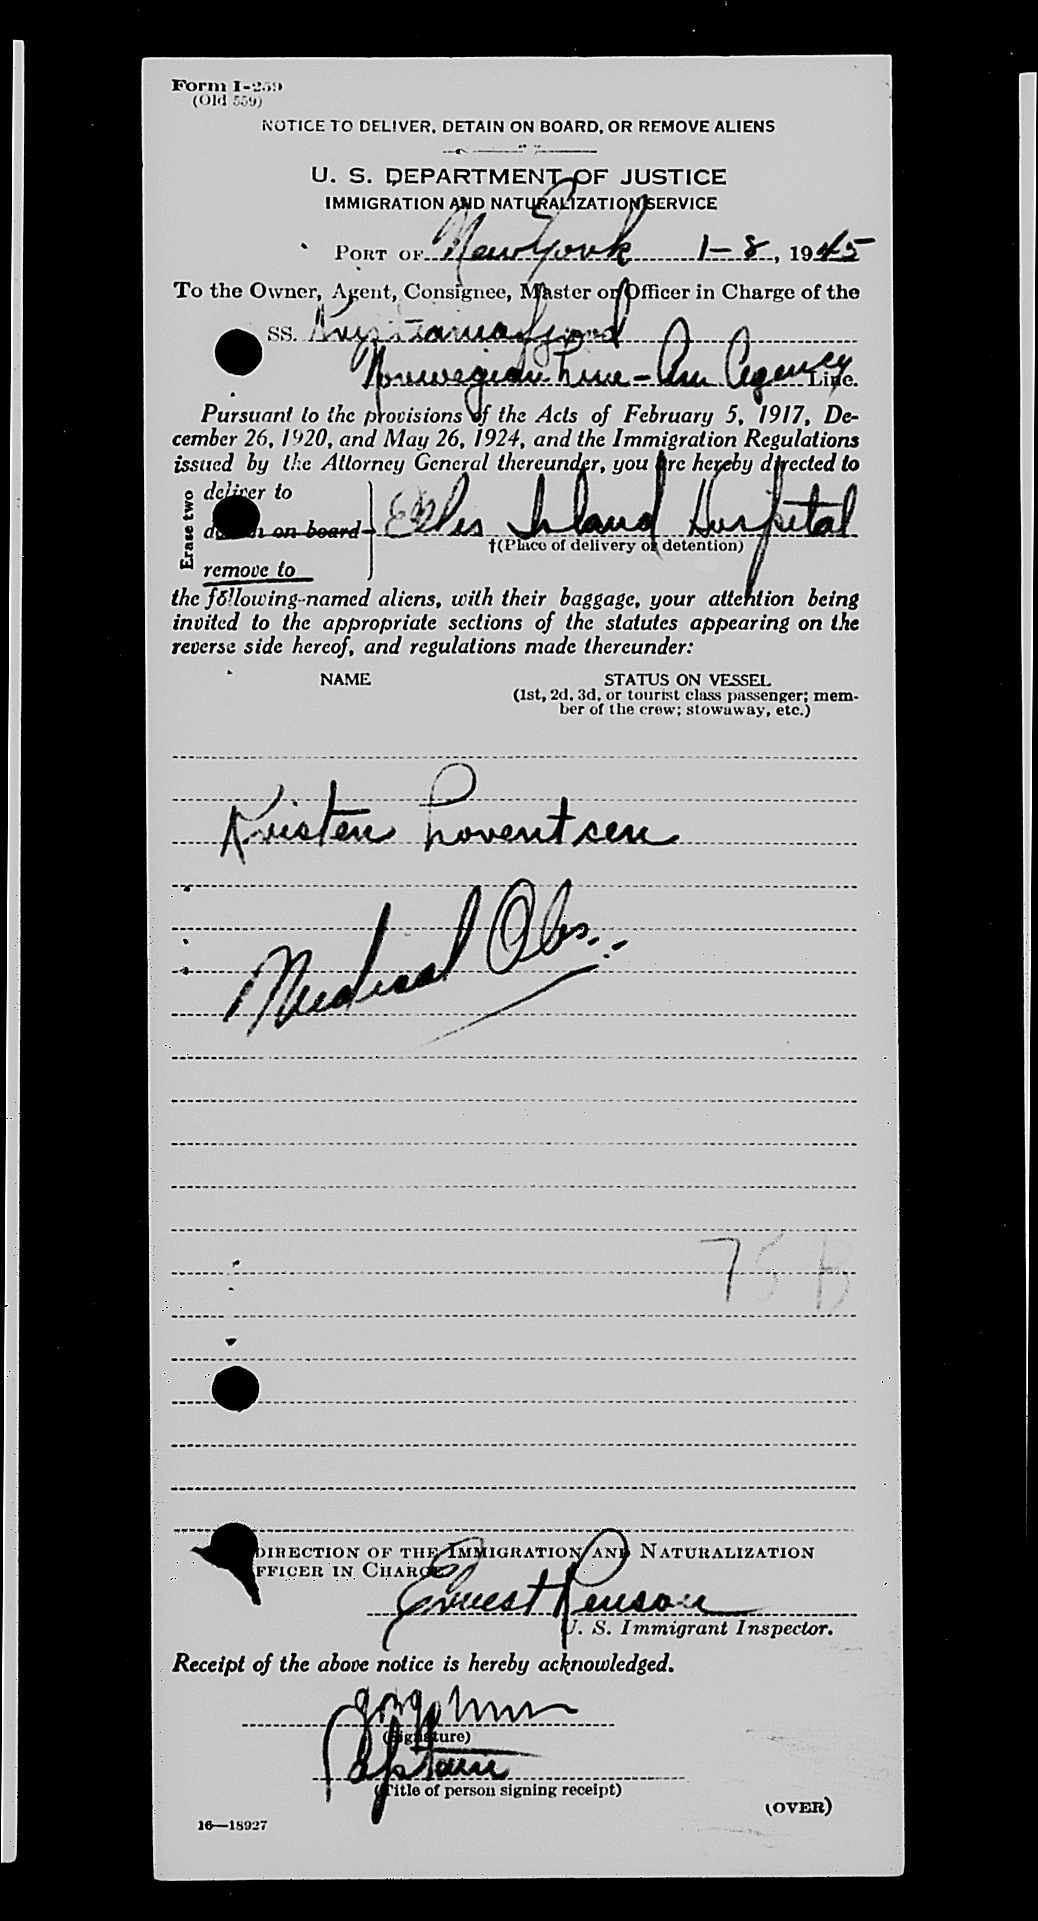 Form I-259
(Old 559)
NOTICE TO DELIVER, DETAIN ON BOARD, OR REMOVE ALIENS
U. S. DEPARTMENT OF JUSTICE
IMMIGRATION AND NATURALIZATION SERVICE
PORT OF New York 1-8, 1945
To the Owner, Agent, Consignee, Master or Officer in Charge of the
SS. Kristianiafjord
Norwegian Line - Am Agency Line.
Pursuant to the provisions of the Acts of February 5, 1917, De-
cember 26, 1920, and May 26, 1924, and the Immigration Regulations
issued by the Attorney General thereunder, you are hereby directed to
Erase two
deliver to
on board
remove to
Ellis Island Hospital
†(Place of delivery or detention)
the following-named aliens, with their baggage, your attention being
invited to the appropriate sections of the statutes appearing on the
reverse side hereof, and regulations made thereunder:
NAME STATUS ON VESSEL
(1st, 2d, 3d, or tourist class passenger; mem-
ber of the crew; stowaway, etc.)
Kristen Loventsen
Medical Obs.
75 B
DIRECTION OF THE IMMIGRATION AND NATURALIZATION
FFICER IN CHARGE
Ernest Renson
U. S. Immigrant Inspector.
Receipt of the above notice is hereby acknowledged.
(Signature)
Captain
(Title of person signing receipt)
(OVER)
16—18927